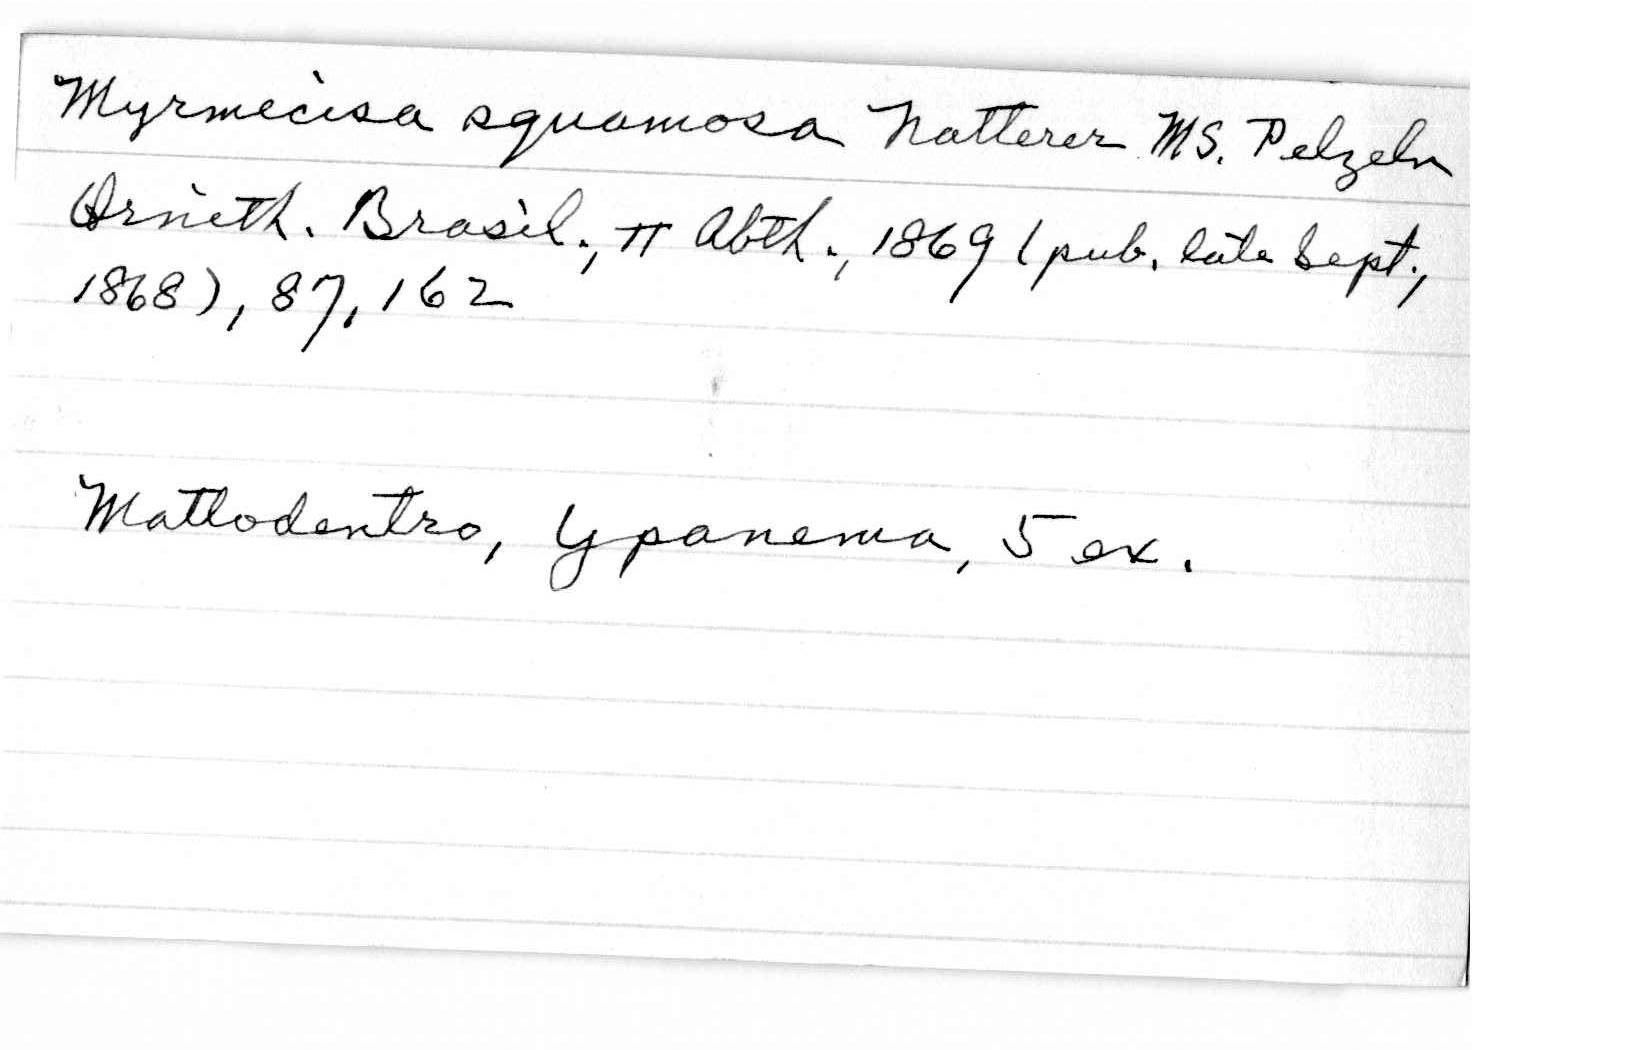 Myrmeciza squamosa Natterer MS. Pelzeln
Ornith. Brasil., II Abth., 1869 (pub. late Sept.,
1868), 87, 162
Mattodentro, Ypanema, 5 ex.